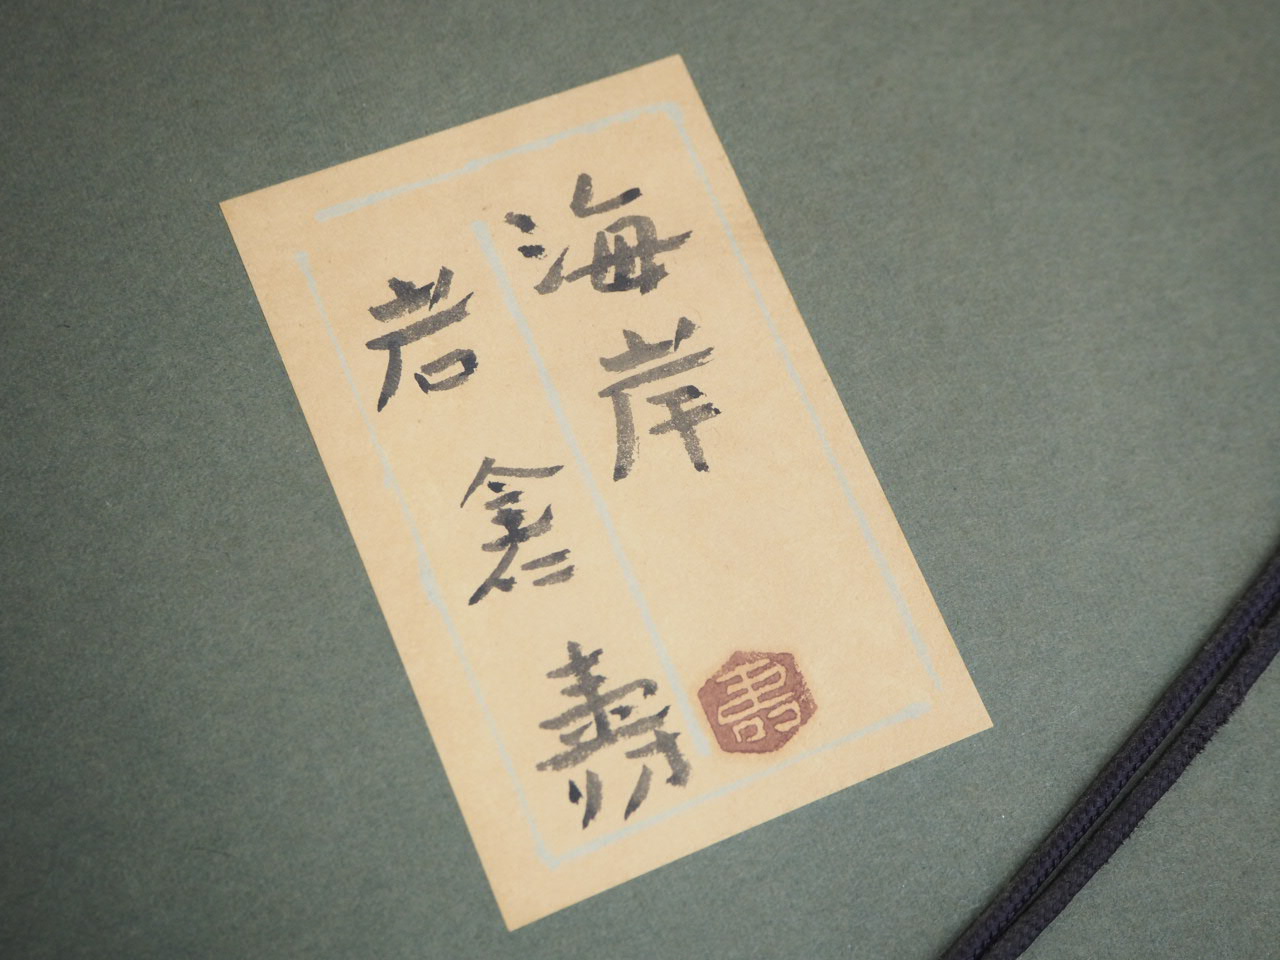 海岸
岩倉壽
壽